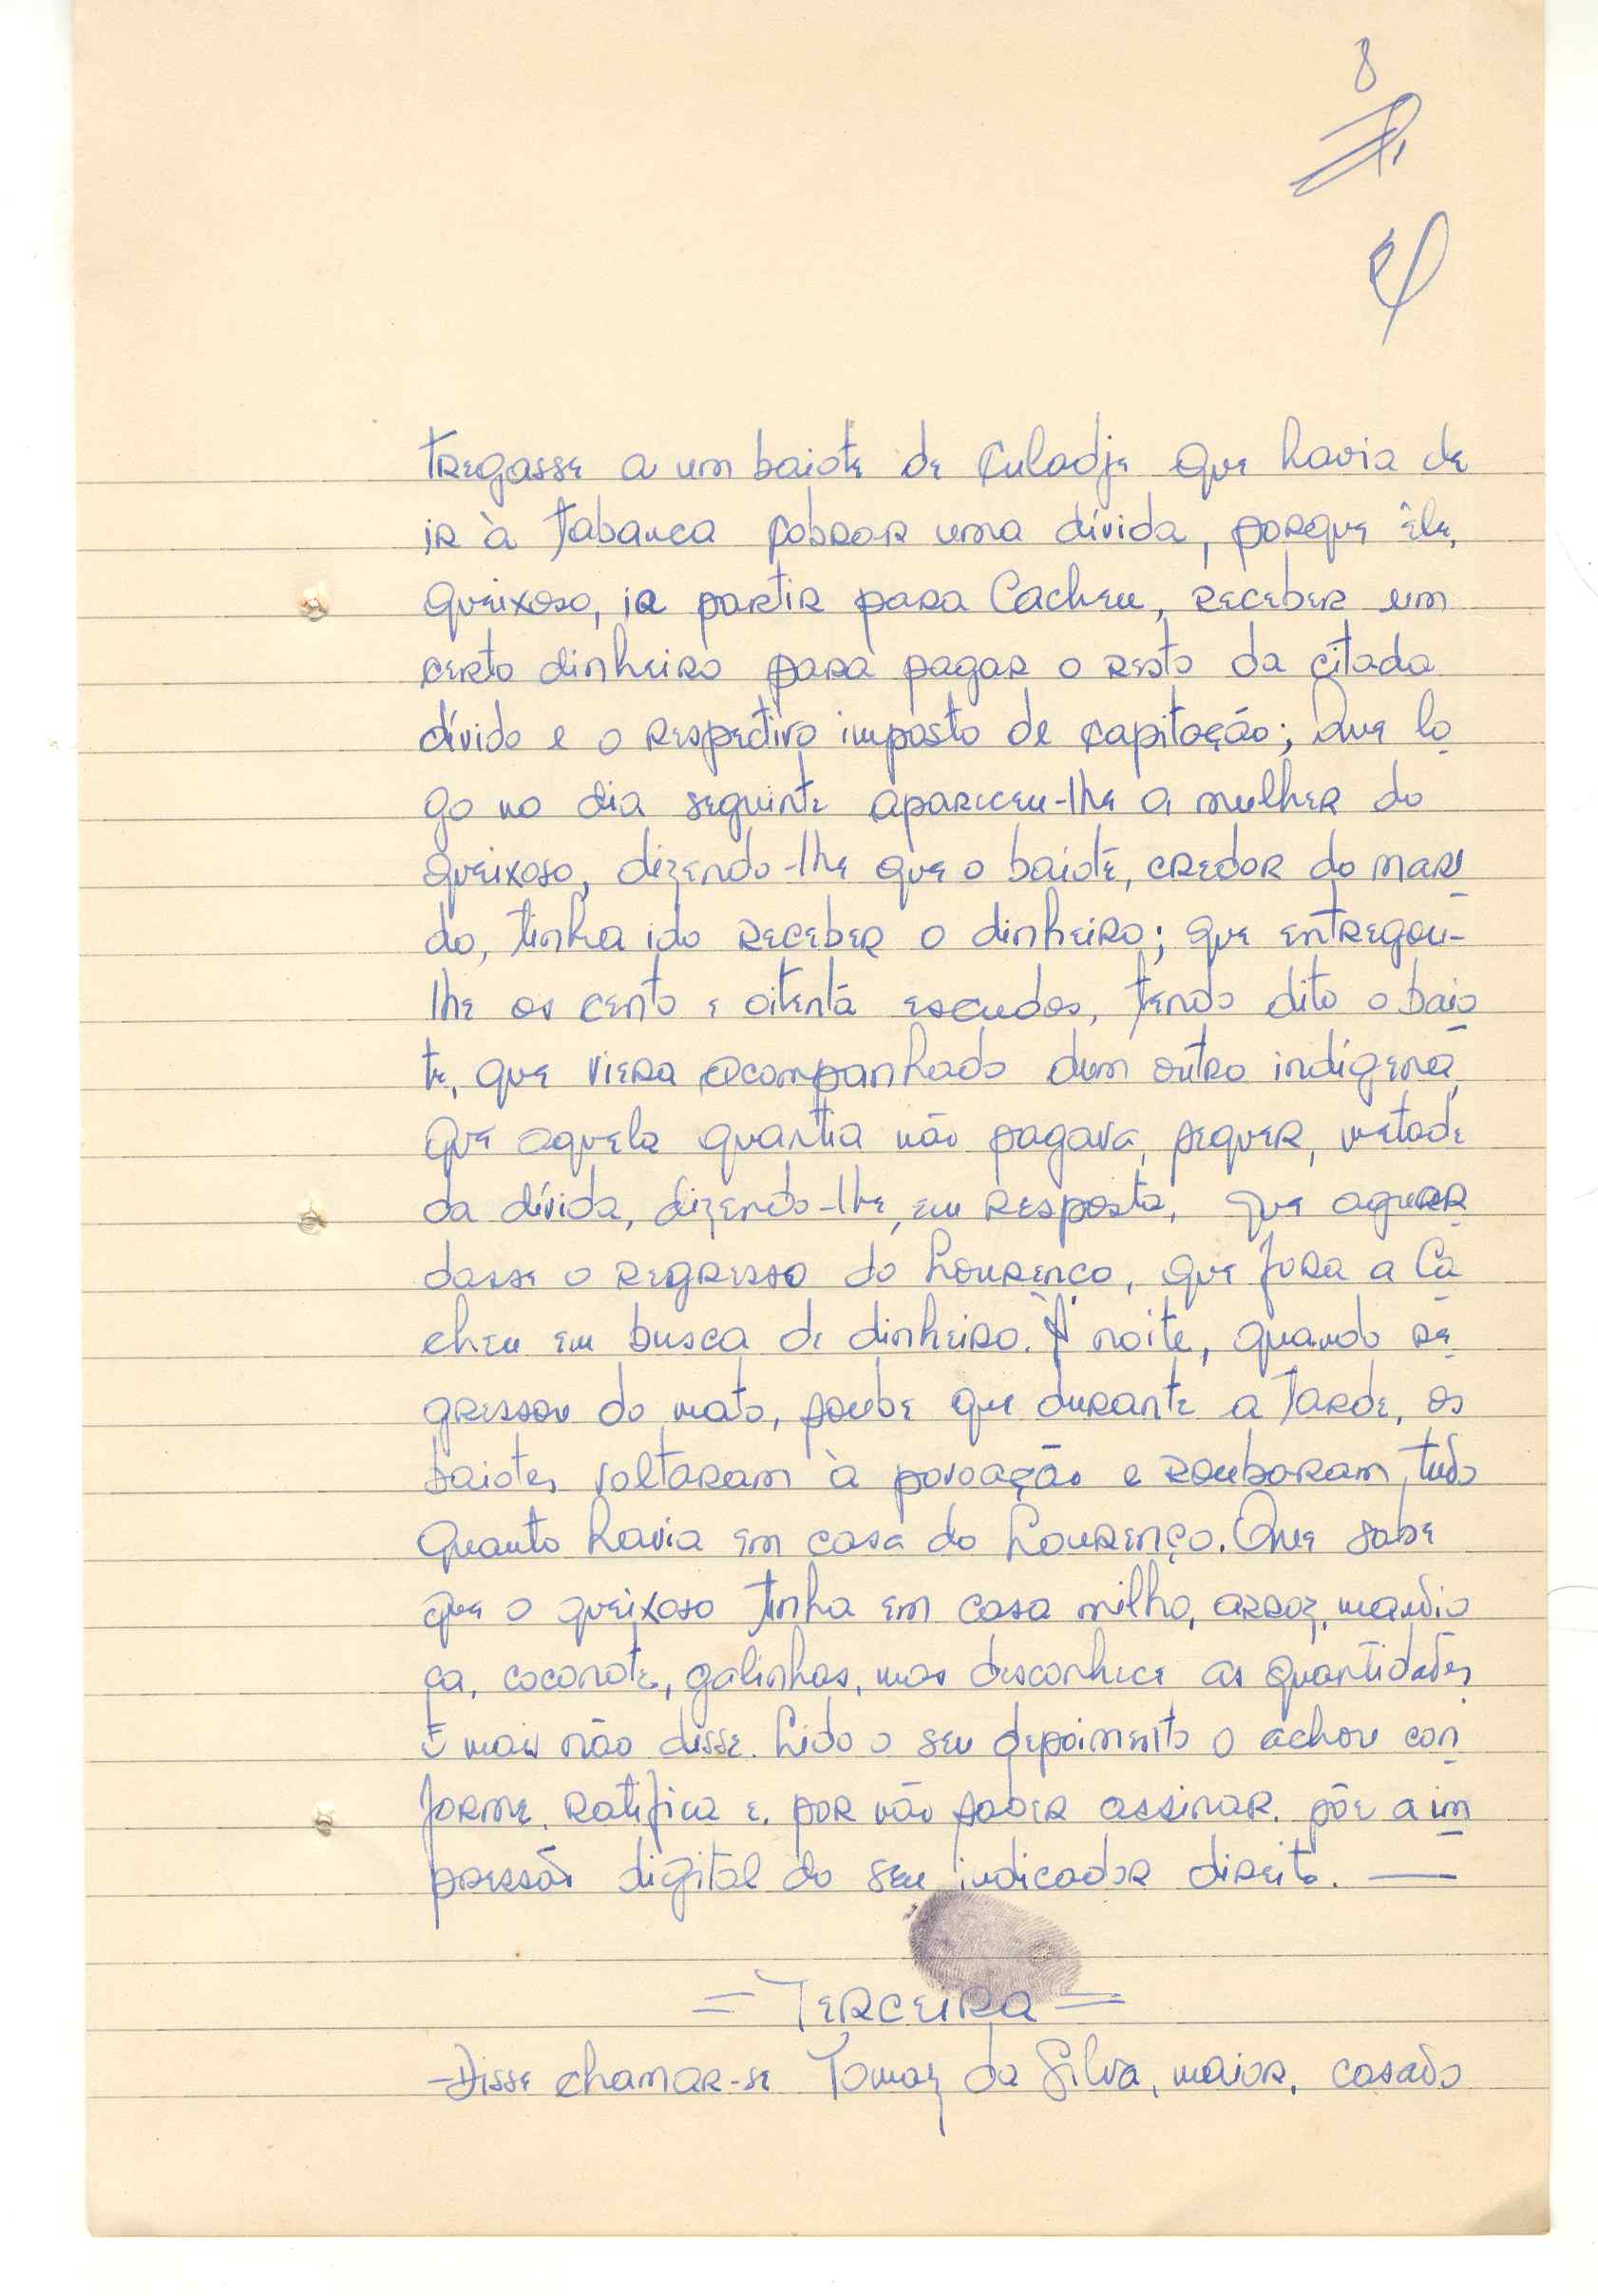 8
tregasse a um baiote de Culadje que havia de
ir à tabanca cobrar uma dívida, porque êle,
queixoso, ia partir para Cacheu, receber um
certo dinheiro para pagar o resto da citada
dívida e o respectivo imposto de capitação; Que lo
go no dia seguinte apareceu-lhe a mulher do
queixoso, dizendo-lhe que o baiote, credor do mari
do, tinha ido receber o dinheiro; que entregou-
lhe os cento e oitenta escudos, tendo dito o baio
te, que viera acompanhado dum outro indígena,
que aquela quantia não pagava, sequer, metade
da dívida, dizendo-lhe, em resposta, que aguar
dasse o regresso do Lourenço, que fora a Ca
cheu em busca de dinheiro. À noite, quando re
gressou do mato, soube que durante a tarde, os
baiotes voltaram à povoação e roubaram tudo
quanto havia em casa do Lourenço. Que sabe
que o queixoso tinha em casa milho, arroz, mandio
ca, coconote, galinhas, mas desconhece as quantidades.
E mais não disse. Lido o seu depoimento o achou con
forme, ratifica e, por não saber assinar, põe a im
pressão digital do seu indicador direito. —
= Terceira =
- Disse chamar-se Tomaz da Silva, maior, casado